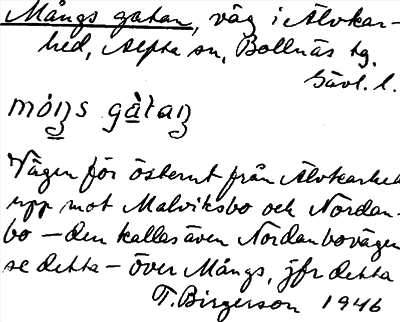 Mångs gatan, väg i Älvkar-
hed, Alfta sn, Bollnäs tg.
Gävl. l.
móŋs gàtaŋ
Vägen för österut från Älvkarhed
upp mot Malviksbo och Nordan-
bo – den kallas även Nordanbovägen
se detta – över Mångs, jfr detta
T. Birgerson 1946